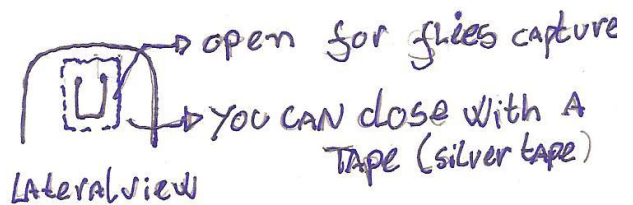 open for flies capture
YOU CAN close with A
TAPe (silver tape)
LAteral view